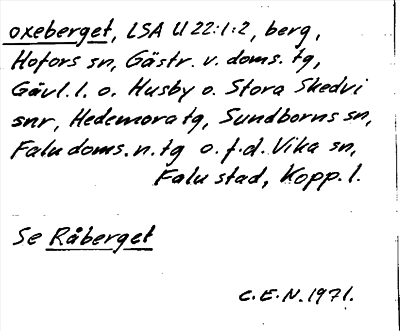 oxeberget, LSA U 22:1:2, berg,
Hofors sn, Gästr. v. doms. tg,
Gävl. l. o. Husby o. Stora Skedvi
snr, Hedemora tg, Sundborns sn,
Falu doms. n. tg o. f.d. Vika sn,
Falu stad, Kopp. l.
Se Råberget
C.E.N. 1971.